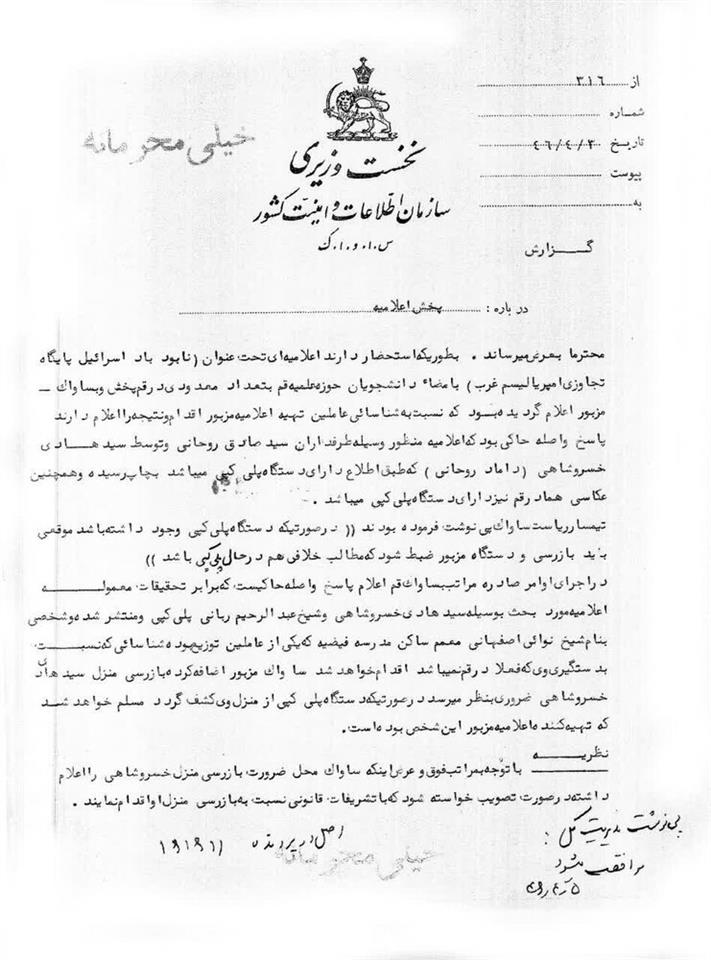 از ۳۱۶
شماره
تاریخ ۴۶/۴/۳
پیوست
به
خیلی محرمانه
نخست وزیری
سازمان اطلاعات و امنیت کشور
س.ا.و.ا.ک
گزارش
درباره: پخش اعلامیه
محترما بعرض میرساند . بطوریکه استحضار دارند اعلامیه‌ای تحت عنوان (نابود باد اسرائیل پایگاه
تجاوزی امپریالیسم غرب) بامضاء دانشجویان حوزه علمیه قم بتعداد معدودی در قم پخش و بساواک ـ
مزبور اعلام گردیده بود که نسبت به شناسائی عاملین تهیه اعلامیه مزبور اقدام و نتیجه را اعلام دارند
پاسخ واصله حاکی بود که اعلامیه منظور وسیله طرفداران سید صادق روحانی و توسط سید هادی
خسروشاهی (داماد روحانی) که طبق اطلاع دارای دستگاه پلی کپی میباشد بچاپ رسیده و همچنین
عکاسی هما در قم نیز دارای دستگاه پلی کپی میباشد .
تیمسار ریاست ساواک پی نوشت فرموده بودند ((در صورتیکه دستگاه پلی کپی وجود داشته باشد موقعی
باید بازرسی و دستگاه مزبور ضبط شود که مطالب خلافی هم در حال پلی کپی باشد))
در اجرای اوامر صادره مراتب بساواک قم اعلام پاسخ واصله حاکیست که برابر تحقیقات معموله
اعلامیه مورد بحث بوسیله سید هادی خسروشاهی و شیخ عبدالرحیم ربانی پلی کپی و منتشر شده و شخصی
بنام شیخ نوائی اصفهانی معمم ساکن مدرسه فیضیه که یکی از عاملین توزیع بوده شناسائی که نسبت
بدستگیری وی که فعلا در قم نمیباشد اقدام خواهد شد ساواک مزبور اضافه کرده بازرسی منزل سید هادی
خسروشاهی ضروری بنظر میرسد در صورتیکه دستگاه پلی کپی از منزل وی کشف گردد مسلم خواهد شد
که تهیه کننده اعلامیه مزبور این شخص بوده است.
نظریه
با توجه بمراتب فوق و عرض اینکه ساواک محل ضرورت بازرسی منزل خسروشاهی را اعلام
داشته در صورت تصویب خواسته شود که با تشریفات قانونی نسبت به بازرسی منزل او اقدام نمایند .
پی نوشت مدیریت کل :
موافقت میشود
اصل در پرونده
خیلی محرمانه